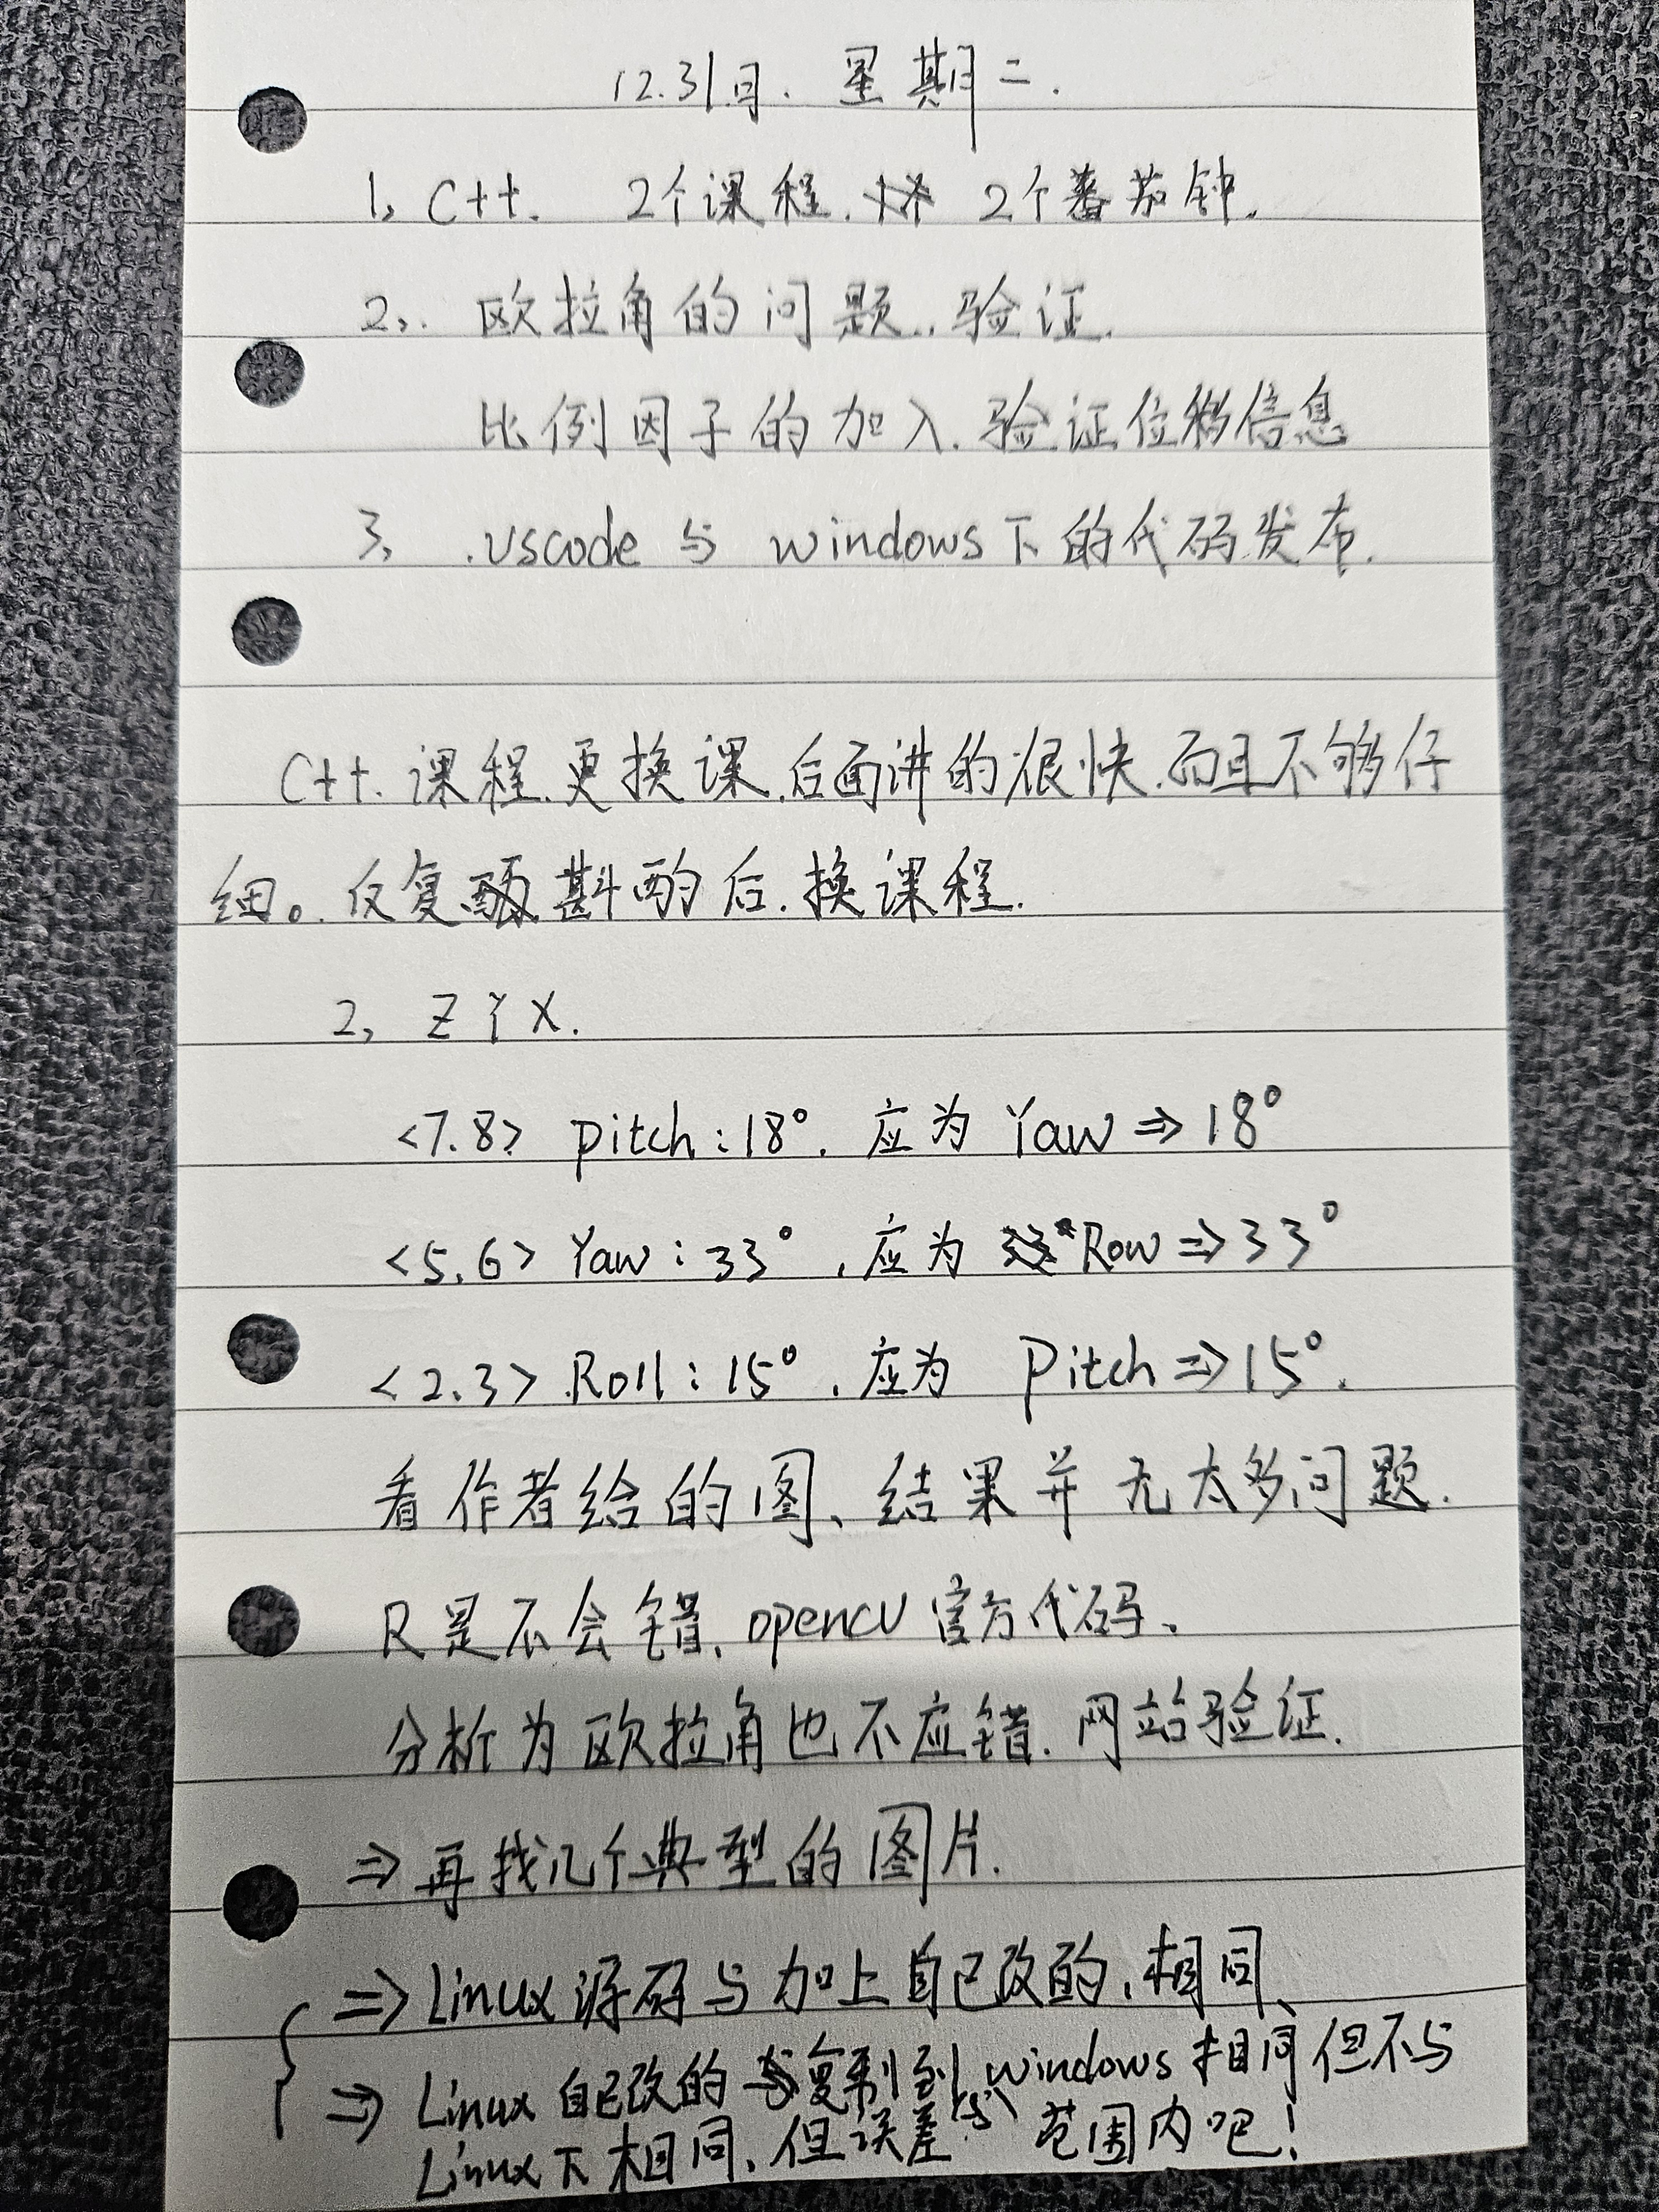 12.31日. 星期二.
1, C++. 2个课程. 2个蕃茄钟.
2,. 欧拉角的问题., 验证.
比例因子的加入. 验证位移信息
3, .vscode 与 windows下的代码发布.
C++. 课程. 更换课. 后面讲的很快. 而且不够仔
细。. 反复斟酌后. 换课程.
2, ZYX.
<7.8> pitch:18°. 应为 Yaw ⇒ 18°
<5.6> Yaw:33°, 应为 Row ⇒ 33°
<2.3> Roll:15°, 应为 Pitch ⇒ 15°.
看作者给的图、结果并无太多问题.
R是不会错, opencv官方代码、
分析为欧拉角也不应错. 网站验证.
⇒ 再找几个典型的图片.
⇒ Linux源码与加上自己改的, 相同、
⇒ Linux自己改的复制到windows相同但不与
Linux下相同、但误差 范围内吧!